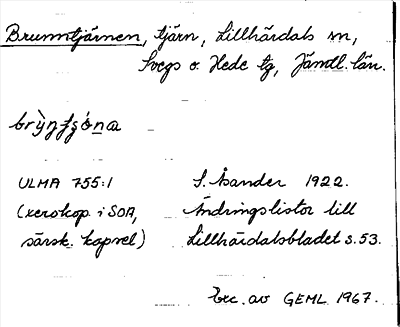 Brunntjärnen, tjärn, Lillhärdals sn,
Svegs o. Hede tg, Jämtl. län.
ULMA 755:1
S. Åsander 1922.
(xerokop. i SOA,
Ändringslistor till
särsk. kapsel)
Lillhärdalsbladet s. 53.
Exc. av GEML 1967.